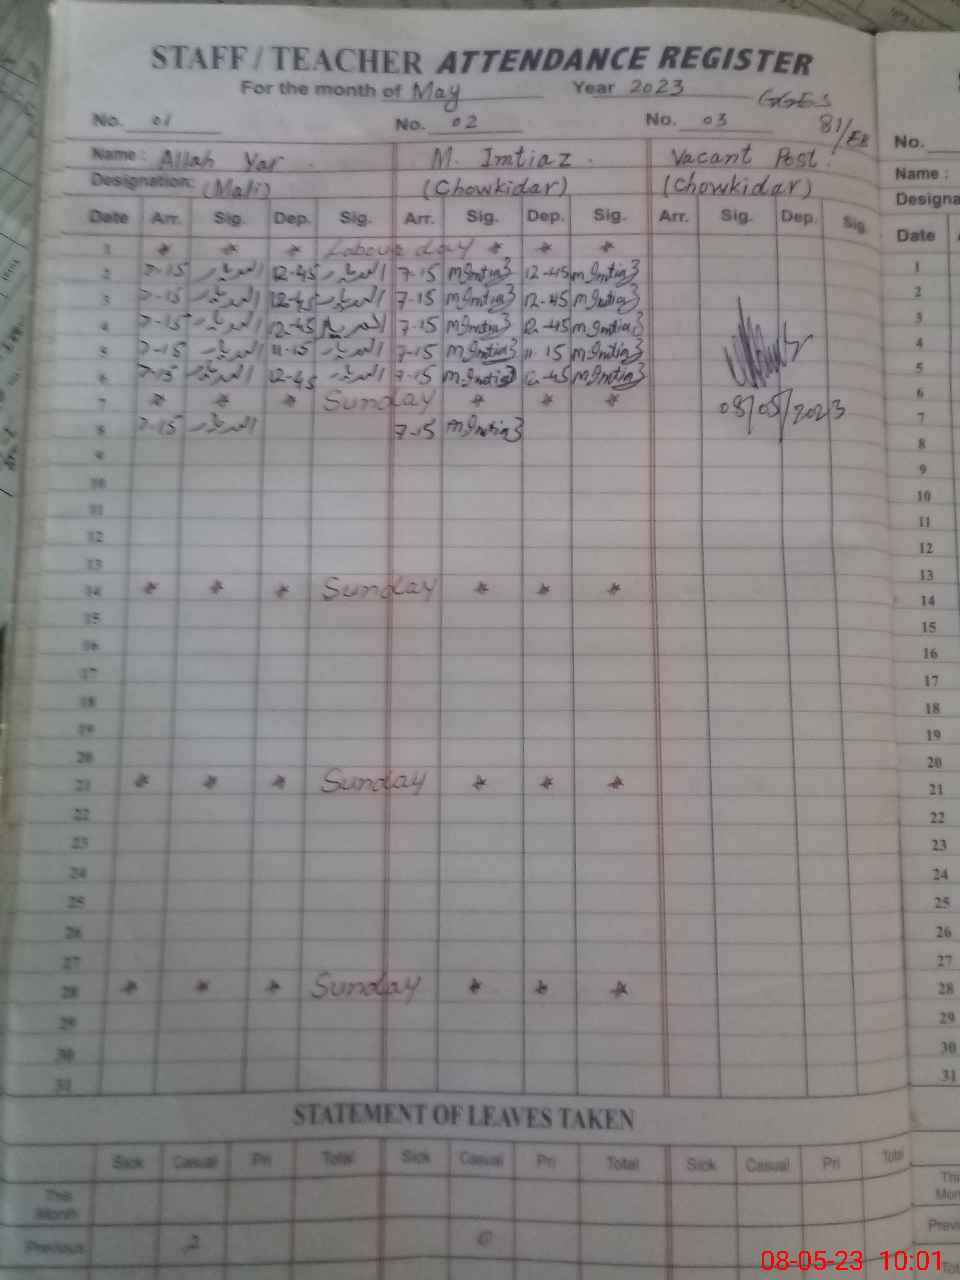 STAFF / TEACHER ATTENDANCE REGISTER
For the month of May Year 2023
No. 01 No. 02 No. 03 81/EB No.
Name : Allah Yar M. Imtiaz Vacant Post Name :
Designation: (Mali) (Chowkidar) (Chowkidar) Designa
Date Arr. Sig. Dep. Sig. Arr. Sig. Dep. Sig. Arr. Sig. Dep. Sig. Date
1 * * * Labour day * * * 1
2 7-15 12-45 7-15 12-45 2
3 7-15 12-45 7-15 12-45 3
4 7-15 12-45 7-15 12-45 4
5 7-15 11-15 7-15 11 15 5
6 7-15 12-45 7-15 12-45 6
7 * * * Sunday * * * 08/05/2023 7
8 7-15 7-15 8
9 9
10 10
11 11
12 12
13 13
14 * * * Sunday * * * 14
15 15
16 16
17 17
18 18
19 19
20 20
21 * * * Sunday * * * 21
22 22
23 23
24 24
25 25
26 26
27 27
28 * * * Sunday * * * 28
29 29
30 30
31 31
STATEMENT OF LEAVES TAKEN
Sick Casual Pri Total Sick Casual Pri Total Sick Casual Pri Total
This Month
Previous 2 0 Previ
08-05-23 10:01